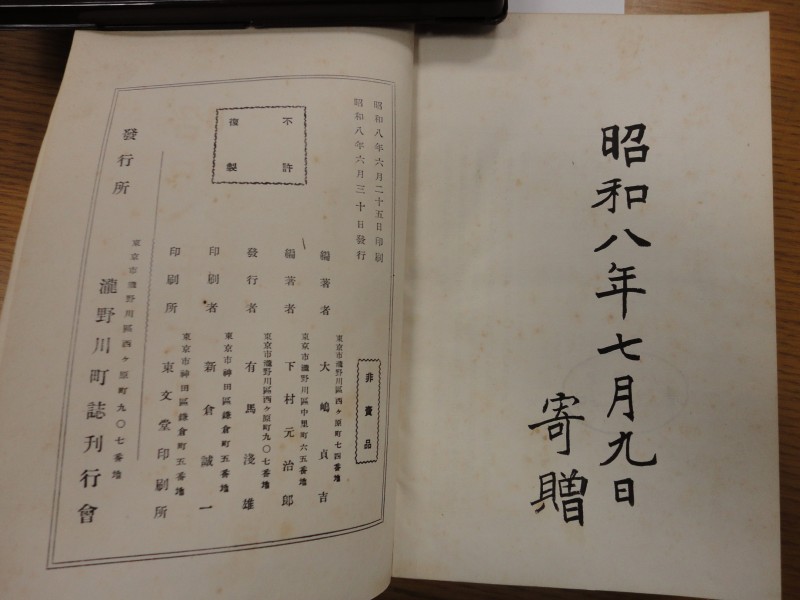 昭和八年七月九日
寄贈
昭和八年六月二十五日印刷
昭和八年六月三十日發行
不許
複製
非賣品
東京市瀧野川區西ヶ原町七四番地
編著者 大嶋貞吉
東京市瀧野川區中里町六五番地
編著者 下村元治郎
東京市瀧野川區西ヶ原町九〇七番地
發行者 有馬淺雄
東京市神田區鎌倉町五番地
印刷者 新倉誠一
東京市神田區鎌倉町五番地
印刷所 東文堂印刷所
發行所
東京市瀧野川區西ヶ原町九〇七番地
瀧野川町誌刊行會